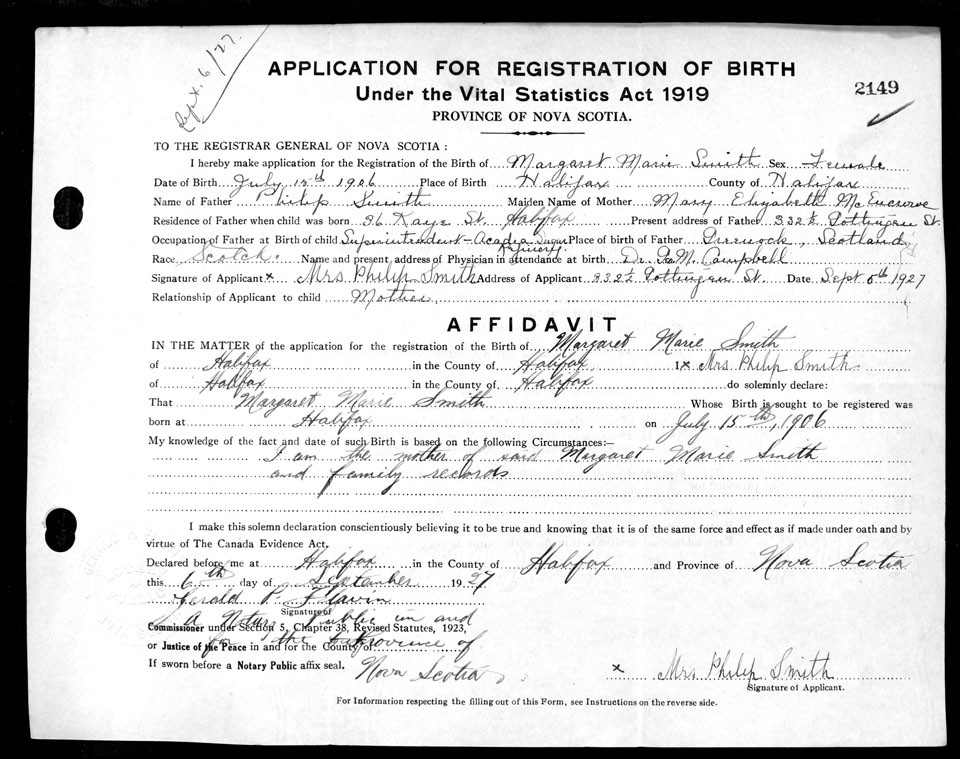 Sept. 6/27.
APPLICATION FOR REGISTRATION OF BIRTH
Under the Vital Statistics Act 1919
2149
PROVINCE OF NOVA SCOTIA.
TO THE REGISTRAR GENERAL OF NOVA SCOTIA :
I hereby make application for the Registration of the Birth of Margaret Marie Smith Sex Female
Date of Birth July 15th 1906 Place of Birth Halifax County of Halifax
Name of Father Philip Smith Maiden Name of Mother Mary Elizabeth
Residence of Father when child was born 36 Kaye St. Halifax Present address of Father 332½ Gottingen St.
Occupation of Father at Birth of child Superintendent - Acadia Sugar Refinery Place of Birth of Father Greenock, Scotland
Race Scotch. Name and present address of Physician in attendance at birth Dr. Campbell
Signature of Applicant x Mrs Philip Smith Address of Applicant 332½ Gottingen St. Date Sept 6th 1927
Relationship of Applicant to child Mother
AFFIDAVIT
IN THE MATTER of the application for the registration of the Birth of Margaret Marie Smith
of Halifax in the County of Halifax I x Mrs Philip Smith
of Halifax in the County of Halifax do solemnly declare:
That Margaret Marie Smith Whose Birth is sought to be registered was
born at Halifax on July 15th, 1906
My knowledge of the fact and date of such Birth is based on the following Circumstances:—
I am the mother of said Margaret Marie Smith
and family records
I make this solemn declaration conscientiously believing it to be true and knowing that it is of the same force and effect as if made under oath and by
virtue of The Canada Evidence Act.
Declared before me at Halifax in the County of Halifax and Province of Nova Scotia
this 6th day of September 1927
Gerald P. Flavin
Signature of
A Notary Public in and
Commissioner under Section 5, Chapter 38, Revised Statutes, 1923,
for the Province of
or Justice of the Peace in and for the County of
If sworn before a Notary Public affix seal.
Nova Scotia
x Mrs Philip Smith
Signature of Applicant.
For Information respecting the filling out of this Form, see Instructions on the reverse side.